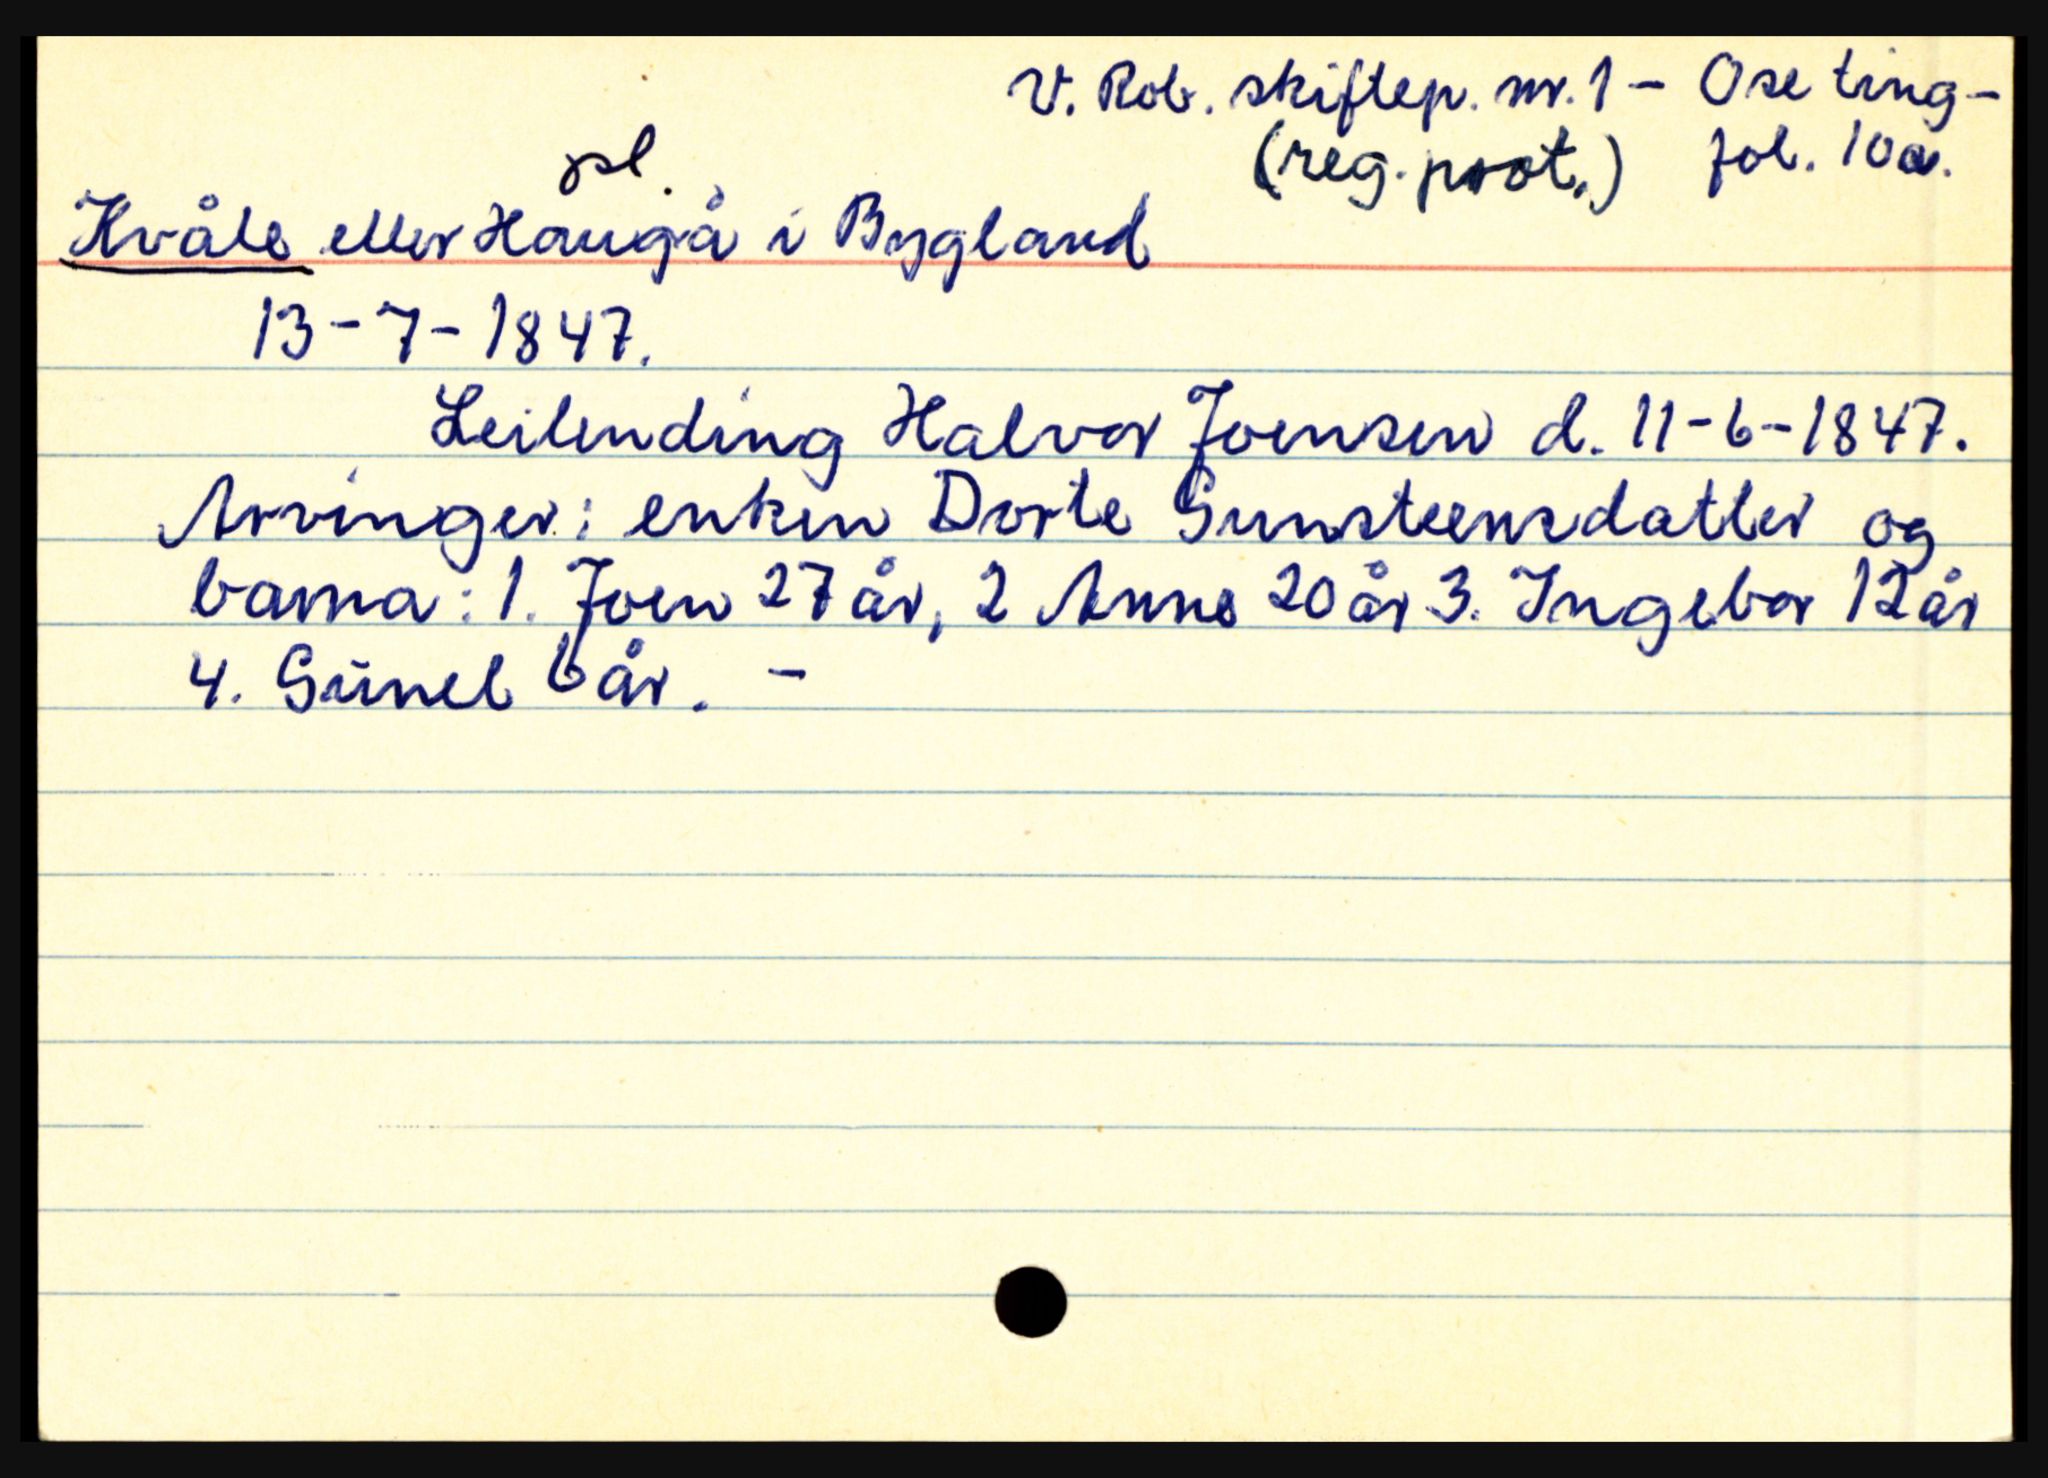 V. Rob. skiftep. nr. 1 - Ose ting-
(reg. prot.) fol. 10a.
pl.
Kvåle eller Haugå i Bygland
13-7-1847.
Leilending Halvor Joensen d. 11-6-1847.
Arvinger: enken Dorte Gunsteensdatter og
barna: 1. Joen 27 år, 2 Anne 20 år 3. Ingebor 12 år
4. Gunel 6 år. -